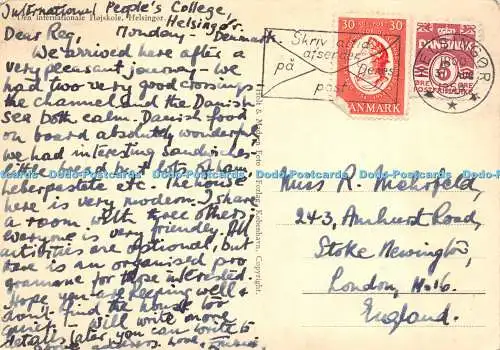 International People's College,
Den internationale Højskole, Helsingør.
Helsingør
Dear Reg, Monday - Denmark
We arrived here after a
very pleasant journey - we
had two very good crossings
the channel and the Danish
sea both calm. Danish food
on board absolutely wonderful
we had interesting sandwiches
little bread but lots of ham
leberpastete etc. The house
here is very modern. I share
a room with three others;
everyone is very friendly. All
activities are optional, but
there is an organised pro
gramme for those interested.
Hope you are keeping well &
don't find the house too
quiet! - Will write more
details later, you can write to
above address. Love,
Stenders Forlag, København. Copyright.
Skriv altid
afsender
på
Deres
post
30 30
DANMARK
DANMARK
HELSINGØR
Miss R. Mehrfeld,
243, Amhurst Road,
Stoke Newington,
London, N.16.
England.
Dodo-Postcards Dodo-Postcards Dodo-Postcards Dodo-Postcards